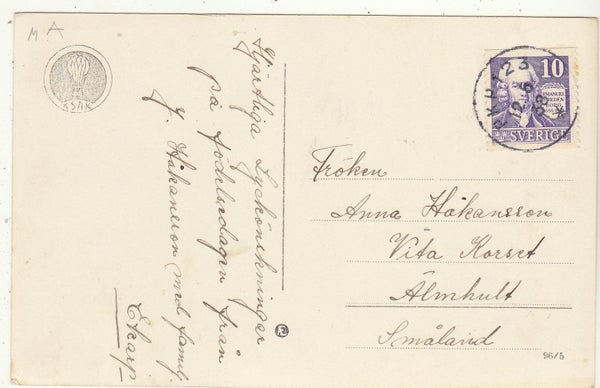 M A
KSAK
Hjärtliga Lyckönskningar
på födelsedagen från
J. Håkansson med familj.
Ekarp
10
EMANUEL
SWEDEN
BORG
SVERIGE
PKP 123
12.6
38
Fröken
Anna Håkansson
Vita Korset
Älmhult
Småland
96/5